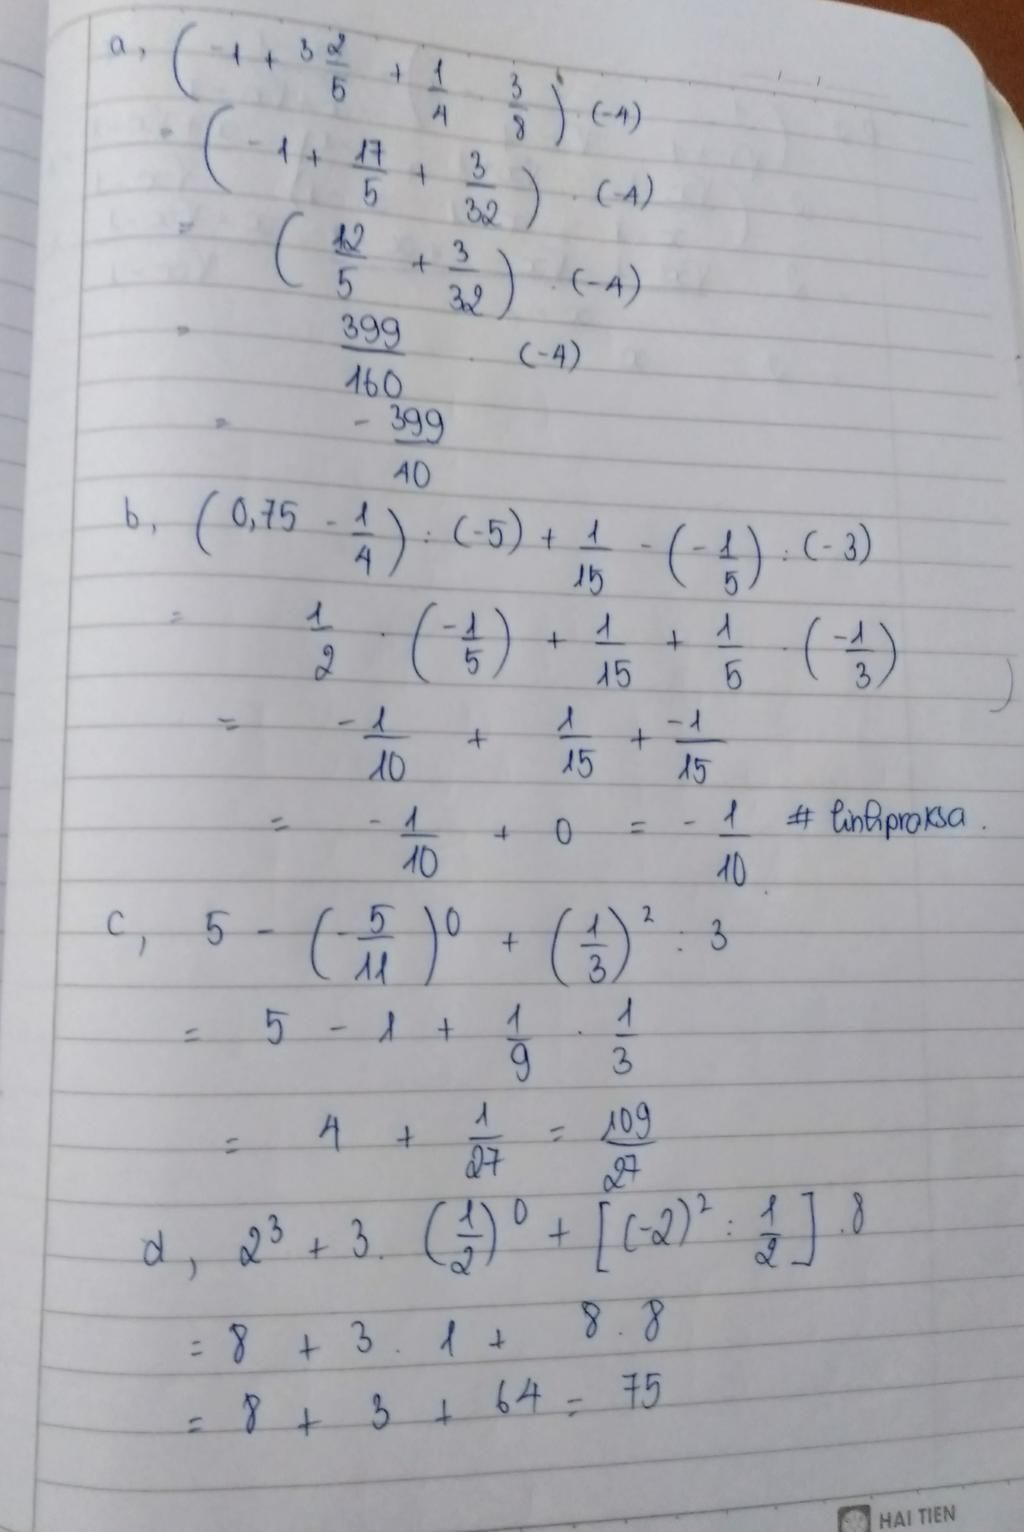 a, ( -1 + 3 2/5 + 1/4 · 3/8 ) · (-4)
= ( -1 + 17/5 + 3/32 ) · (-4)
= ( 12/5 + 3/32 ) · (-4)
= 399/160 · (-4)
= -399/40
b, ( 0,75 - 1/4 ) : (-5) + 1/15 - ( -1/5 ) : (-3)
= 1/2 · ( -1/5 ) + 1/15 + 1/5 · ( -1/3 )
= -1/10 + 1/15 + -1/15
= -1/10 + 0 = -1/10 # linhproksa.
c, 5 - ( -5/11 )⁰ + ( 1/3 )² : 3
= 5 - 1 + 1/9 · 1/3
= 4 + 1/27 = 109/27
d, 2³ + 3 . ( 1/2 )⁰ + [ (-2)² : 1/2 ] . 8
= 8 + 3 . 1 + 8 . 8
= 8 + 3 + 64 = 75
HAI TIEN